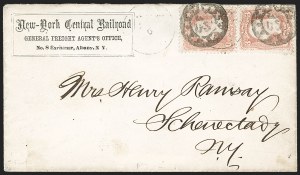 New-York Central Railroad
GENERAL FREIGHT AGENT'S OFFICE,
No. 8 Exchange, Albany, N. Y.
Mrs. Henry Ramsay
Schenectady
N.Y.